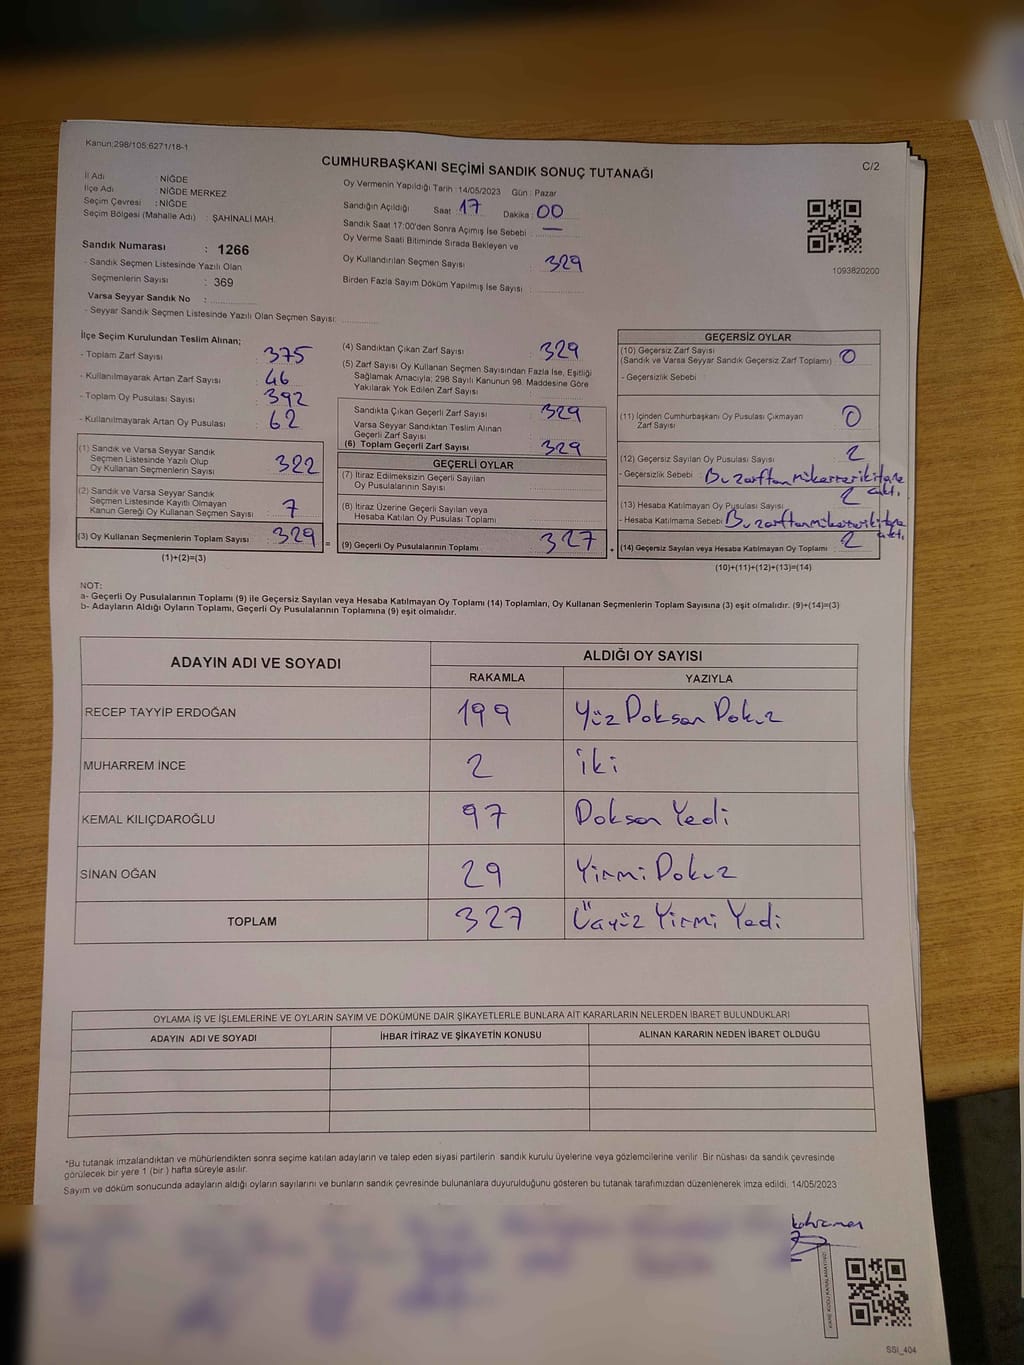 Kanun:298/105;6271/18-1
CUMHURBAŞKANI SEÇİMİ SANDIK SONUÇ TUTANAĞI
C/2
İl Adı : NİĞDE
İlçe Adı : NİĞDE MERKEZ
Seçim Çevresi : NİĞDE
Seçim Bölgesi (Mahalle Adı) : ŞAHİNALİ MAH.
Sandık Numarası : 1266
- Sandık Seçmen Listesinde Yazılı Olan
Seçmenlerin Sayısı : 369
Varsa Seyyar Sandık No :
- Seyyar Sandık Seçmen Listesinde Yazılı Olan Seçmen Sayısı:
Oy Vermenin Yapıldığı Tarih : 14/05/2023 Gün : Pazar
Sandığın Açıldığı Saat 17 Dakika : 00
Sandık Saat 17:00'den Sonra Açımış İse Sebebi : —
Oy Verme Saati Bitiminde Sırada Bekleyen ve
Oy Kullandırılan Seçmen Sayısı : 329
Birden Fazla Sayım Döküm Yapılmış İse Sayısı :
1093820200
İlçe Seçim Kurulundan Teslim Alınan;
- Toplam Zarf Sayısı : 375
- Kullanılmayarak Artan Zarf Sayısı : 46
- Toplam Oy Pusulası Sayısı : 392
- Kullanılmayarak Artan Oy Pusulası : 62
(1) Sandık ve Varsa Seyyar Sandık
Seçmen Listesinde Yazılı Olup
Oy Kullanan Seçmenlerin Sayısı : 322
(2) Sandık ve Varsa Seyyar Sandık
Seçmen Listesinde Kayıtlı Olmayan
Kanun Gereği Oy Kullanan Seçmen Sayısı : 7
(3) Oy Kullanan Seçmenlerin Toplam Sayısı : 329
(1)+(2)=(3)
=
(4) Sandıktan Çıkan Zarf Sayısı : 329
(5) Zarf Sayısı Oy Kullanan Seçmen Sayısından Fazla İse, Eşitliği
Sağlamak Amacıyla; 298 Sayılı Kanunun 98. Maddesine Göre
Yakılarak Yok Edilen Zarf Sayısı :
Sandıkta Çıkan Geçerli Zarf Sayısı : 329
Varsa Seyyar Sandıktan Teslim Alınan
Geçerli Zarf Sayısı :
(6) Toplam Geçerli Zarf Sayısı : 329
GEÇERLİ OYLAR
(7) İtiraz Edilmeksizin Geçerli Sayılan
Oy Pusulalarının Sayısı :
(8) İtiraz Üzerine Geçerli Sayılan veya
Hesaba Katılan Oy Pusulası Toplamı :
(9) Geçerli Oy Pusulalarının Toplamı : 327
+
GEÇERSİZ OYLAR
(10) Geçersiz Zarf Sayısı
(Sandık ve Varsa Seyyar Sandık Geçersiz Zarf Toplamı) : 0
- Geçersizlik Sebebi :
(11) İçinden Cumhurbaşkanı Oy Pusulası Çıkmayan
Zarf Sayısı : 0
(12) Geçersiz Sayılan Oy Pusulası Sayısı : 2
- Geçersizlik Sebebi : Bu zarftan mükerrer iki tane çıktı.
(13) Hesaba Katılmayan Oy Pusulası Sayısı : 2
- Hesaba Katılmama Sebebi : Bu zarftan mükerrer iki tane çıktı.
(14) Geçersiz Sayılan veya Hesaba Katılmayan Oy Toplamı : 2
(10)+(11)+(12)+(13)=(14)
NOT:
a- Geçerli Oy Pusulalarının Toplamı (9) ile Geçersiz Sayılan veya Hesaba Katılmayan Oy Toplamı (14) Toplamları, Oy Kullanan Seçmenlerin Toplam Sayısına (3) eşit olmalıdır. (9)+(14)=(3)
b- Adayların Aldığı Oyların Toplamı, Geçerli Oy Pusulalarının Toplamına (9) eşit olmalıdır.
ADAYIN ADI VE SOYADI ALDIĞI OY SAYISI
RAKAMLA YAZIYLA
RECEP TAYYİP ERDOĞAN 199 Yüz Doksan Dokuz
MUHARREM İNCE 2 iki
KEMAL KILIÇDAROĞLU 97 Doksan Yedi
SİNAN OĞAN 29 Yirmi Dokuz
TOPLAM 327 Üçyüz Yirmi Yedi
OYLAMA İŞ VE İŞLEMLERİNE VE OYLARIN SAYIM VE DÖKÜMÜNE DAİR ŞİKAYETLERLE BUNLARA AİT KARARLARIN NELERDEN İBARET BULUNDUKLARI
ADAYIN ADI VE SOYADI İHBAR İTİRAZ VE ŞİKAYETİN KONUSU ALINAN KARARIN NEDEN İBARET OLDUĞU
*Bu tutanak imzalandıktan ve mühürlendikten sonra seçime katılan adayların ve talep eden siyasi partilerin sandık kurulu üyelerine veya gözlemcilerine verilir. Bir nüshası da sandık çevresinde
görülecek bir yere 1 (bir ) hafta süreyle asılır.
Sayım ve döküm sonucunda adayların aldığı oyların sayılarını ve bunların sandık çevresinde bulunanlara duyurulduğunu gösteren bu tutanak tarafımızdan düzenlenerek imza edildi. 14/05/2023
kahraman
SSİ_404